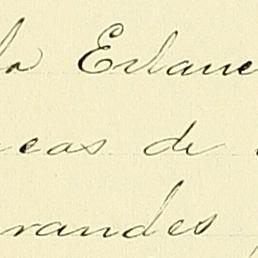 la Exlane
icas de
randes